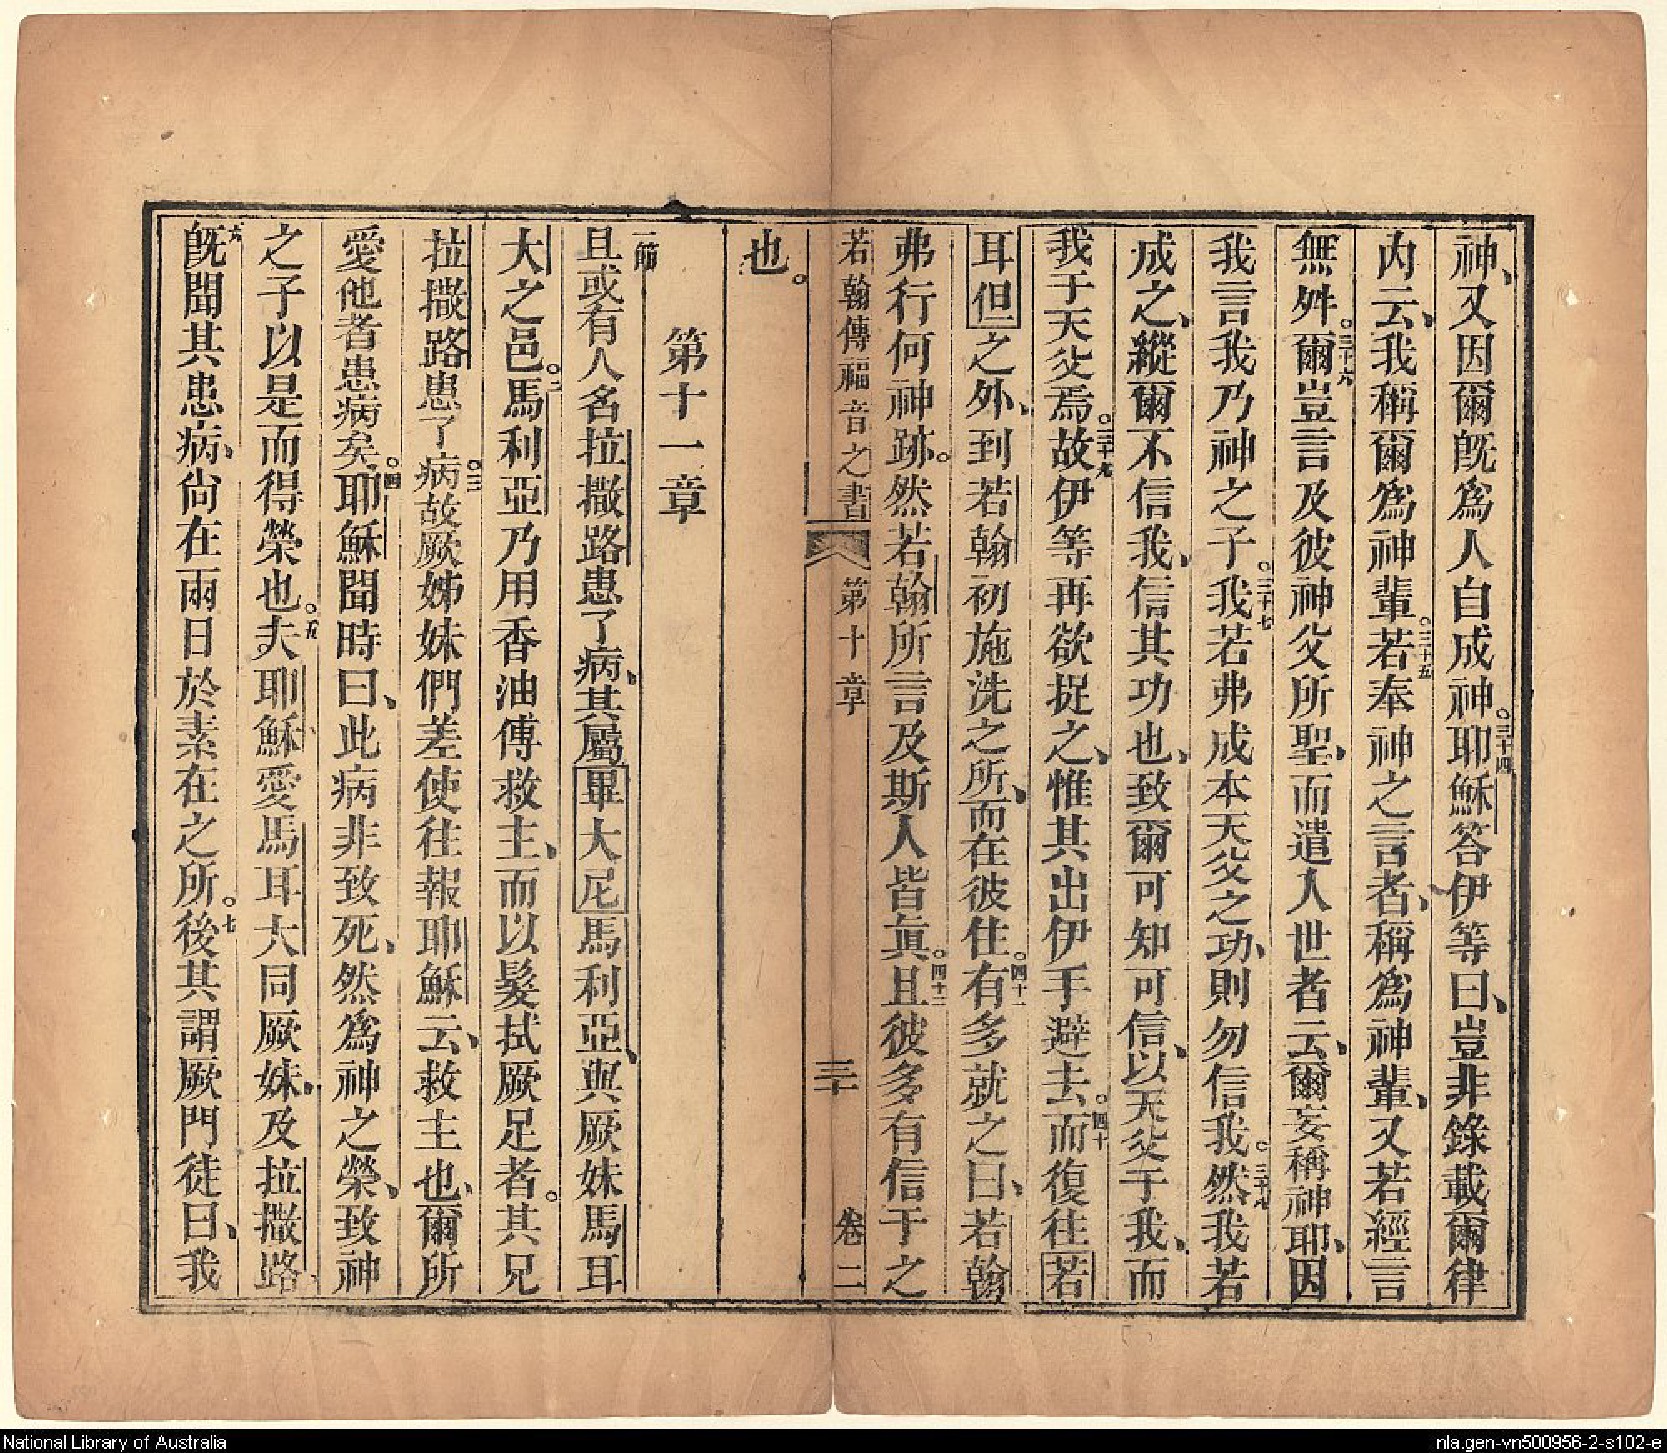 神、又因爾旣爲人自成神。三十四耶穌答伊等曰、豈非錄載爾律
內云、我稱爾爲神輩。三十五若奉神之言者、稱爲神輩、又若經言
無舛。三十六爾豈言及彼神父所聖、而遣人世者云、爾妄稱神耶、因
我言我乃神之子。三十七我若弗成本天父之功、則勿信我。三十八然我若
成之、縱爾不信我、信其功也、致爾可知可信、以天父于我、而
我于天父焉。三十九故伊等再欲捉之、惟其出伊手避去。四十而復往若
耳但之外、到若翰初施洗之所、而在彼住。四十一有多就之曰、若翰
弗行何神跡。然若翰所言及斯人皆眞。四十二且彼多有信于之
若翰傳福音之書 第十章 三十 卷二
也。
第十一章
一節且或有人名拉撒路患了病、其屬畢大尼馬利亞、與厥妹馬耳
大之邑。二馬利亞乃用香油傅救主、而以髮拭厥足者。其兄
拉撒路患了病。三故厥姊妹們差使往報耶穌云、救主也、爾所
愛他者患病矣。四耶穌聞時曰、此病非致死、然爲神之榮、致神
之子以是而得榮也。五夫耶穌愛馬耳大同厥妹、及拉撒路、
六旣聞其患病、尙在兩日於素在之所。七後其謂厥門徒曰、我
National Library of Australia
nla.gen-vn500956-2-s102-e